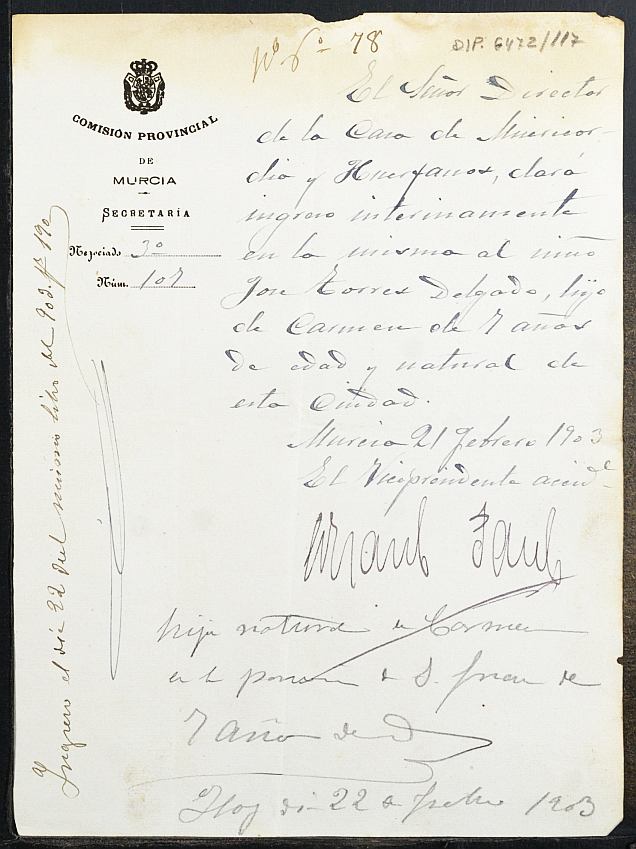 Nº 6º 78
DIP. 6472/117
COMISIÓN PROVINCIAL
DE
MURCIA
SECRETARÍA
Negociado 3º
Núm. 107
El Señor Director
de la Casa de Misericor-
dia y Huerfanos, dará
ingreso interinamente
en la misma al niño
Jose Torres Delgado, hijo
de Carmen de 7 años
de edad y natural de
esta Ciudad.
Murcia 21 febrero 1903
El Vicepresidente accid^l
hijo natural de Carmen
en la de S. Juan de
7 años de
Hoy di 22 de febro 1903
Ingreso el dia 22 del mismo libro del 903. fº 190